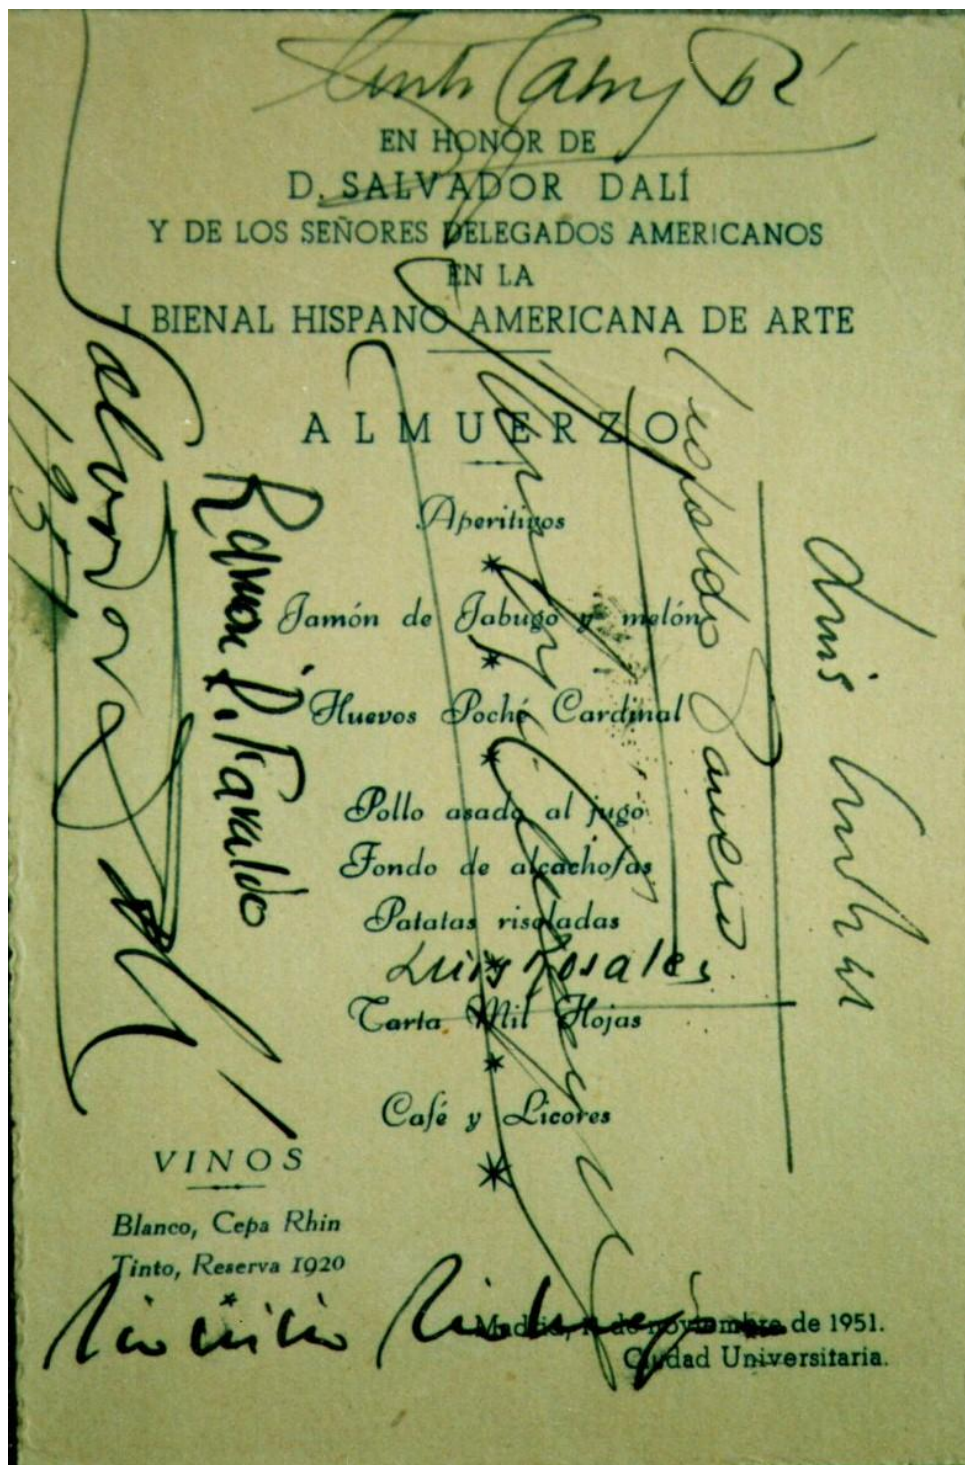 EN HONOR DE
D. SALVADOR DALÍ
Y DE LOS SEÑORES DELEGADOS AMERICANOS
EN LA
I BIENAL HISPANO AMERICANA DE ARTE
ALMUERZO
Aperitivos
Jamón de Jabugo y melón
Huevos Poché Cardinal
Pollo asado al jugo
Fondo de alcachofas
Patatas risoladas
Luis Rosales
Tarta Mil Hojas
Café y Licores
VINOS
Blanco, Cepa Rhin
Tinto, Reserva 1920
Madrid, de noviembre de 1951.
Ciudad Universitaria.
Salvador
1951
Ramón D. Faraldo
Leopoldo Panero
Luis